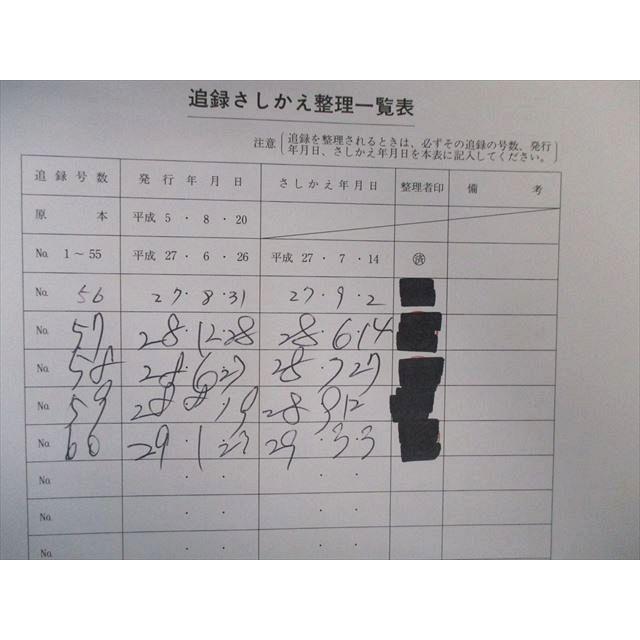 追録さしかえ整理一覧表
注意 追録を整理されるときは、必ずその追録の号数、発行
年月日、さしかえ年月日を本表に記入してください。
追録号数 発行年月日 さしかえ年月日 整理者印 備考
原本 平成 5 ・ 8 ・ 20
No. 1～55 平成 27 ・ 6 ・ 26 平成 27 ・ 7 ・ 14 済
No. 56 27・8・31 27・9・2
No. 57 28・12・28 28・6・14
No. 58 28・6・27 28・7・27
No. 59 28・8・19 28・9・12
No. 60 29・1・27 29・3・3
No. ・ ・ ・ ・
No. ・ ・ ・ ・
No. ・ ・ ・ ・